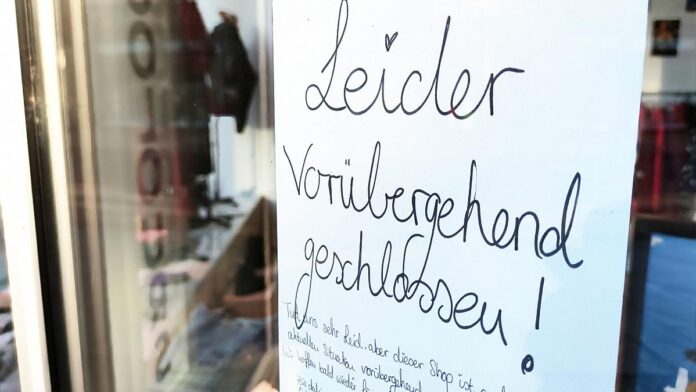 Leider
Vorübergehend
geschlossen!
Tut uns sehr leid, aber dieser Shop ist
aktuellen Situation vorübergehend
Wir hoffen bald wieder